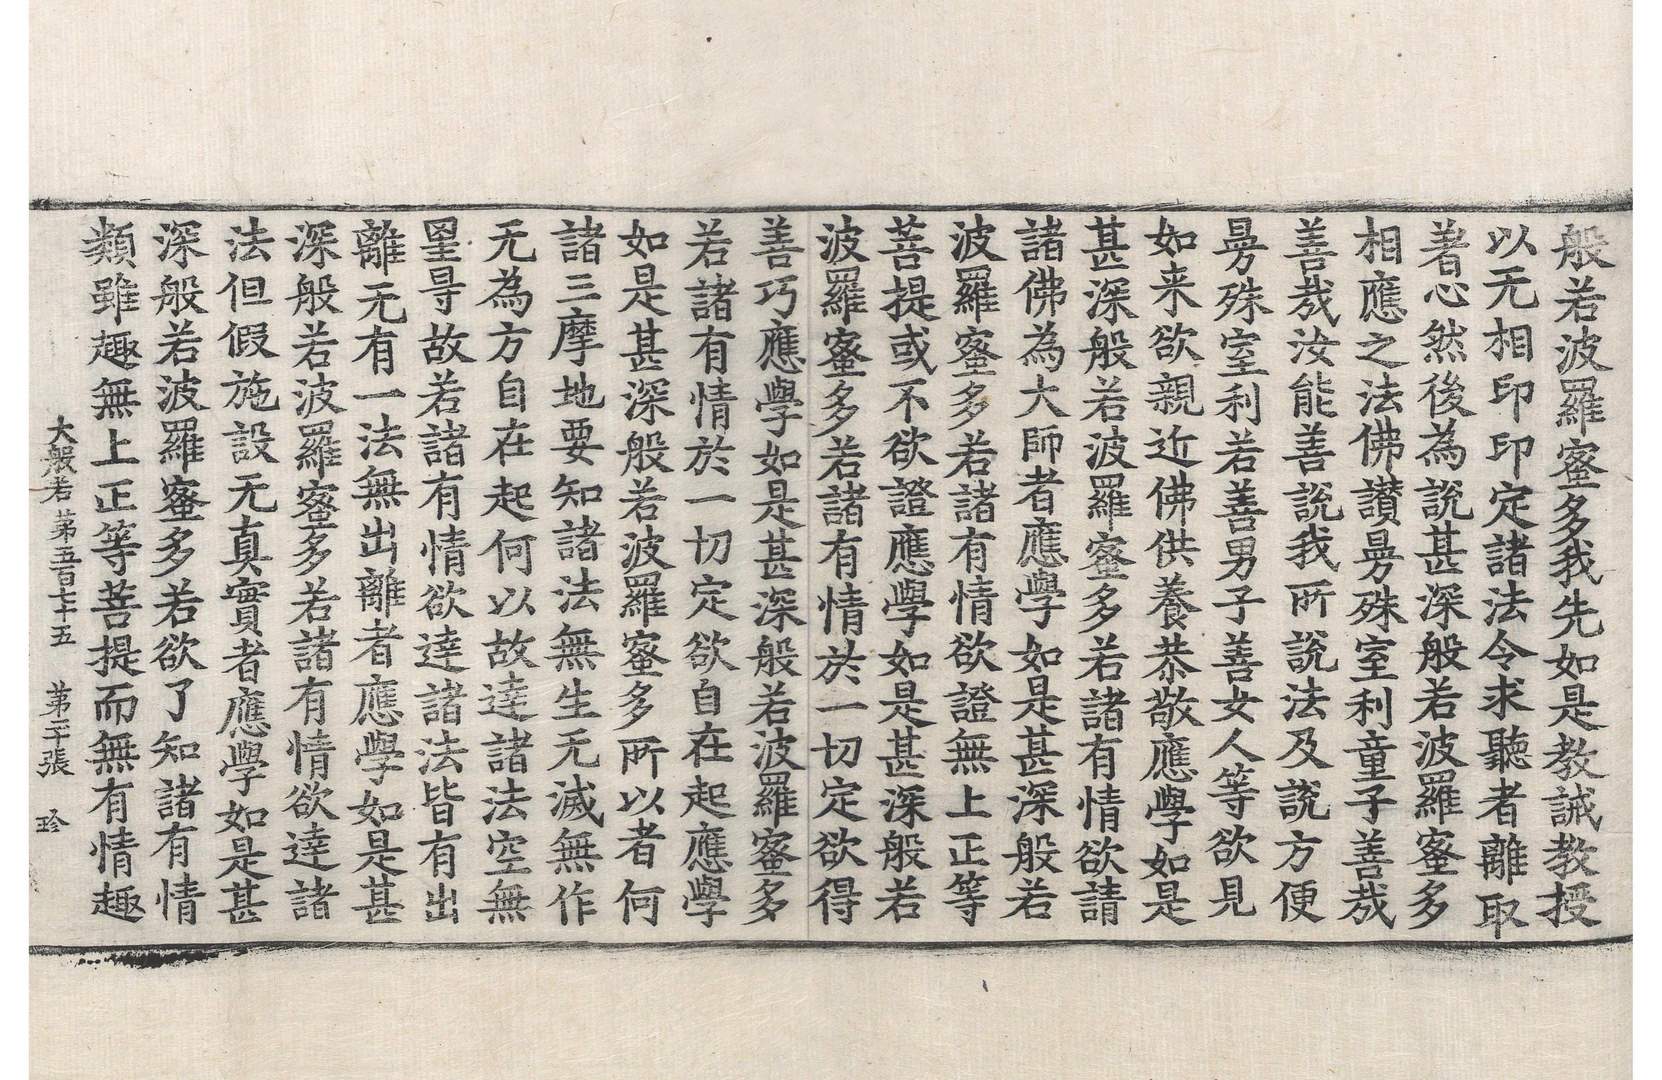 般若波羅蜜多我先如是教誡教授
以无相印印定諸法令求聽者離取
著心然後為說甚深般若波羅蜜多
相應之法佛讃曼殊室利童子善㢤
善㢤汝能善說我所說法及說方便
曼殊室利若善男子善女人等欲見
如来欲親近佛供養恭敬應學如是
甚深般若波羅蜜多若諸有情欲請
諸佛為大師者應學如是甚深般若
波羅蜜多若諸有情欲證無上正等
菩提或不欲證應學如是甚深般若
波羅蜜多若諸有情於一切定欲得
善巧應學如是甚深般若波羅蜜多
若諸有情於一切定欲自在起應學
如是甚深般若波羅蜜多所以者何
諸三摩地要知諸法無生无滅無作
无為方自在起何以故達諸法空無
罣㝵故若諸有情欲達諸法皆有出
離无有一法無出離者應學如是甚
深般若波羅蜜多若諸有情欲達諸
法但假施設无真實者應學如是甚
深般若波羅蜜多若欲了知諸有情
類雖趣無上正等菩提而無有情趣
大般若第五百七十五 第二十張 珍